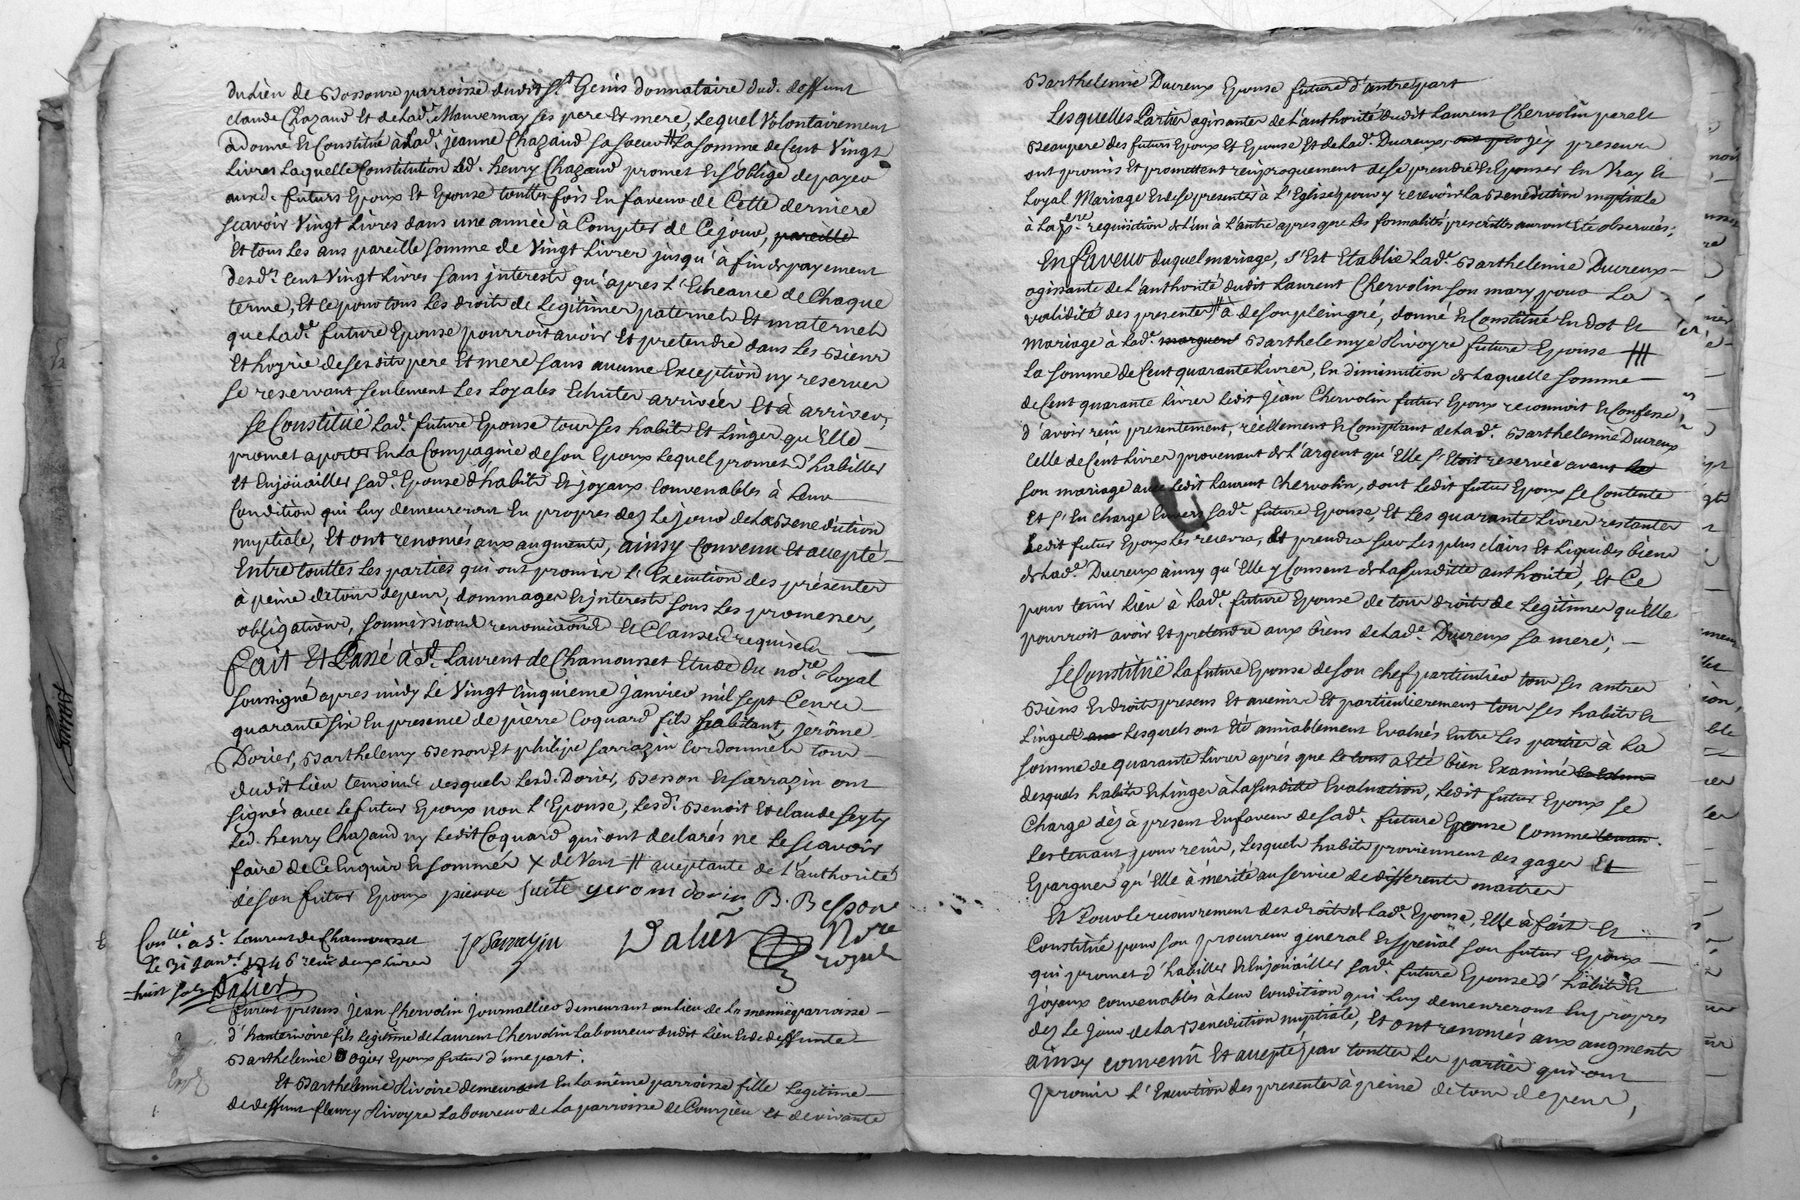 du lieu de Bossoure parroisse dudit St Genis donnataire dud. deffunt
claude Chazaud Et de Lade Mauvernay ses pere Et mere, Lequel Volontairement
a donné Et Constitué à Lade jeanne Chazaud sa soeur # La somme de Cent Vingt
Livres Laquelle Constitution Led. henry Chazaud promet Et s'oblige de payer
auxd. futurs Epoux Et Epouse touttesfois En faveur de Cette derniere
scavoir Vingt Livres dans une année à Compter de Ce jour, pareille
Et tous Les ans pareille somme de Vingt Livres jusqu'à fin de payement
desd. Cent Vingt Livres sans interests qu'après L'Echeance de Chaque
terme, Et Ce pour tous Les droits de Legitimes paternels Et maternels
que Lade future Epouse pourroit avoir Et pretendre dans Les Biens
Et hoyrie de sesdits pere Et mere sans aucune Exception ny reserver
se reservant seulement Les Loyales Echutes arrivées Et à arriver,
se Constitüe Lade future Epouse tous ses habits Et Linges qu'Elle
promet aporter En La Compagnie de son Epoux Lequel promet d'habiller
Et Enjouailler sade Epouse d'habits Et joyaux Convenables à Leur
Condition qui Luy demeureront En propres dez Le jour de La Benediction
nuptiale, Et ont renoncés aux augments, ainsy Convenu Et accepté
Entre touttes Les parties qui ont promis L'Execution des présentes
à peine de tous depens, dommages Et interests sous Les promesses,
obligations, soumissions renonciations Et Clauses requises
fait Et Passé à St Laurent de Chamousset Etude du nore Royal
soussigné apres midy Le Vingt Cinquieme janvier mil sept Cent
quarante six En presence de pierre Coquard fils habitant, jerôme
Dorier, Barthelemy Besson Et philipe sarrazin Cordonniers tous
dudit Lieu temoins desquels Lesd. Dorier, Besson Et sarrazin ont
signés avec Le futur Epoux non L'Epouse, Lesd. Benoit Et claude seyty
Led. henry Chazaud ny Ledit Coquard qui ont declarés ne Le scavoir
faire de Ce Enquis Et sommés X de Vent # acceptante de L'authorité
de son futur Epoux pierre seite yerom dorier B. Besson
Conllé à St Laurent de Chamousset
P Sarrazin Dalier Nore royal
Le 31 janr 1746 reçu deux Livres
huit sols Dalier
furent presens jean Chervolin journallier demeurant au Lieu de La monnë parroisse
d'hauterivoire fils Legitime de Laurent Chervolin Laboureur dudit Lieu Et de deffunte
Barthelemie Dogier Epoux futur d'une part.
Et Barthelemie Rivoire demeurant En La même parroisse fille Legitime
de deffunt fleury Rivoyre Laboureur de La parroisse de Courzieu et de vivante
Barthelemie Ducreux Epouse future d'autre part
Lesquelles Parties agissantes de L'authorité dudit Laurent Chervolin pere Et
Beaupere des futurs Epoux Et Epouse Et de Lade Ducreux, icy presens
ont promis Et promettent reciproquement de se prendre Et Epouser En Vray Et
Loyal Mariage Et de se presenter à L'Eglise pour y recevoir La Benediction nuptiale
à La pre requisition de L'un à L'autre apres que Les formalités prescrittes auront Eté observées;
En faveur duquel mariage, s'Est Etablie Lade Barthelemie Ducreux
agissante de L'authorité dudit Laurent Chervolin son mary, pour La
validité des presentes # à de son plein gré, donné Et Constitué En dot Et
mariage à Lade marguer Barthelemye Rivoyre future Epouse
La somme de Cent quarante Livres, En diminution de Laquelle somme
de Cent quarante Livres Ledit jean Chervolin futur Epoux reconnoit Et Confesse
d'avoir reçu presentement, réellement Et Comptant de Lade Barthelemie Ducreux
Celle de Cent Livres provenant de L'argent qu'Elle s'Etoit reservée avant
son mariage avec Ledit Laurent Chervolin, dont Ledit futur Epoux se Contente
Et s'En charge Envers sade future Epouse, Et Les quarante Livres restantes
Ledit futur Epoux Les recevra, Et prendra sur Les plus clairs Et Liquides biens
de Lade Ducreux ainsy qu'Elle y Consent de La susditte authorité, Et Ce
pour tenir Lieu à Lade future Epouse de tous droits de Legitimes qu'Elle
pourroit avoir Et pretendre aux biens de Lade Ducreux sa mere;
Se Constitüe La future Epouse de son chef particulier tous ses autres
Biens Et droits presens Et avenir Et particulierement tous ses habits Et
Linges Lesquels ont Eté amiablement Evalués Entre Les parties à La
somme de quarante Livres après que Le tout a Eté bien Examiné
desquels habits Et Linges à La susditte Evaluation, Ledit futur Epoux se
Charge déz à present En faveur de sade future Epouse Comme tenan
Les tenant pour reçus, Lesquels habits proviennent des gages Et
Epargnes qu'Elle à mérité au service de differents maitres
Et Pour Le recouvrement des droits de Lade Epouse, Elle à fait Et
Constitüé pour son procureur general Et special son futur Epoux
qui promet d'habiller Et Enjouailler sade future Epouse d'habits Et
joyaux convenables à Leur Condition qui Luy demeureront En propres
dez Le jour de La Benediction nuptiale, Et ont renoncés aux augments
ainsy convenû Et accepté par touttes Les parties qui ont
promis L'Execution des presentes à peine de tous depens,